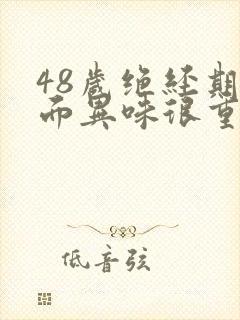 48歲绝经期
而異味很重
低音弦